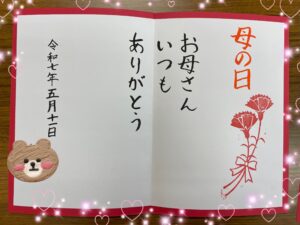 母の日
お母さん
いつも
ありがとう
令和七年 五月十一日